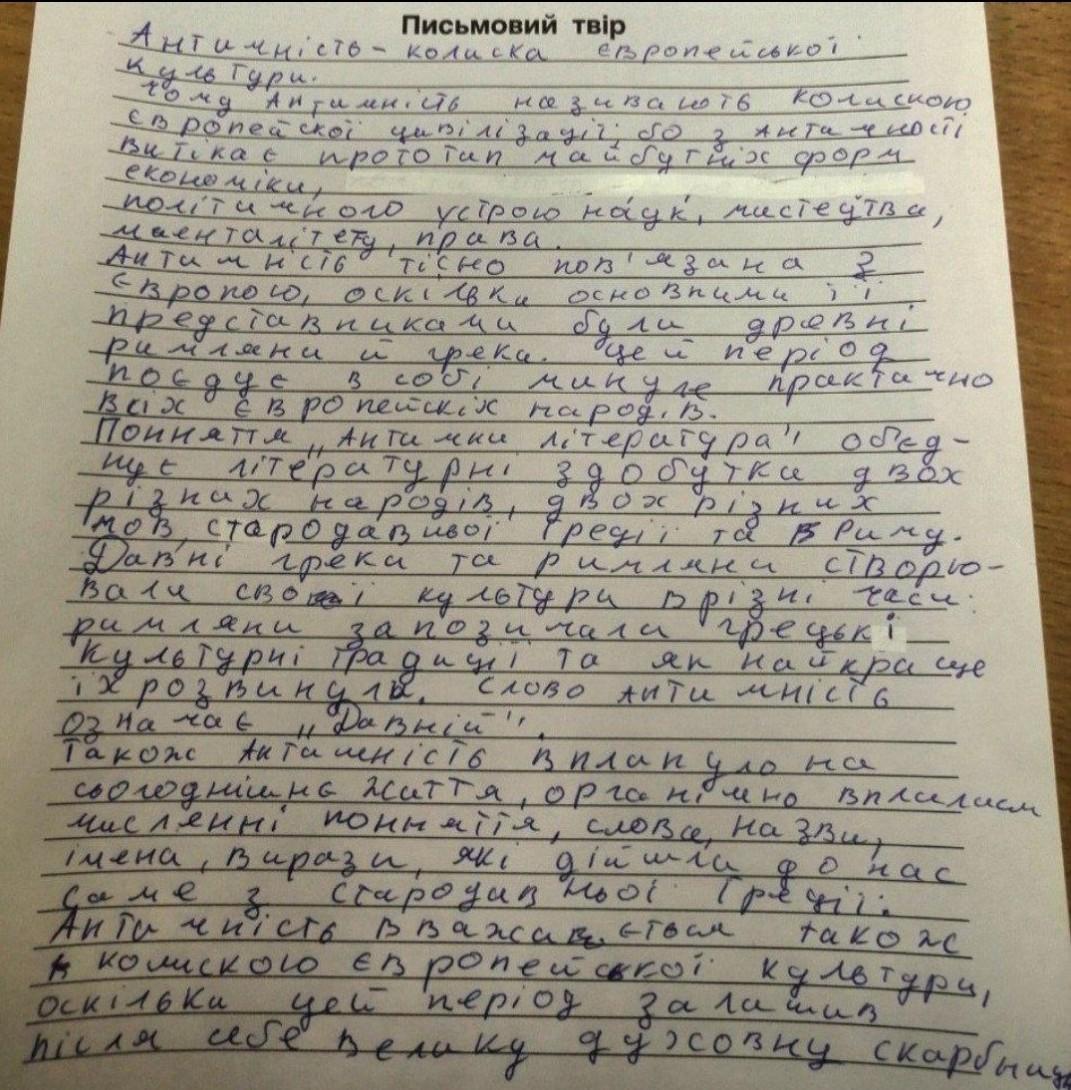 Письмовий твір
Античність - колиска європейської
культури.
Чому Античність називають колискою
європейскої цивілізації, бо з античності
витікає прототип майбутніх форм
економіки,
політичного устрою наук, мистецтва,
маенталітету, права.
Античність тісно пов'язана з
Європою, оскільки основними її
представниками були древні
римляни й греки. Цей період
поєдує в собі минуле практично
всіх європейскіх народів.
Понняття „Антични література" об'єд-
нує літературні здобутки двох
різних народів, двох різних
мов, стародавньої Греції та в Риму.
Давні греки та римляни створю-
вали свої культури в різні часи:
римляни запозичали грецькі
культурні традиції та як найкраще
їх розвинули. Слово античність
означає „Давній".
Також Античність вплануло на
сьогоднішнє життя, органічно вплились
численні понняття, слова, назви,
імена, вирази, які дійшли до нас
саме з стародавньої Греції.
Античність вважається також
колискою європейської культури,
оскільки цей період залишив
після себе велику духовну скарбницю